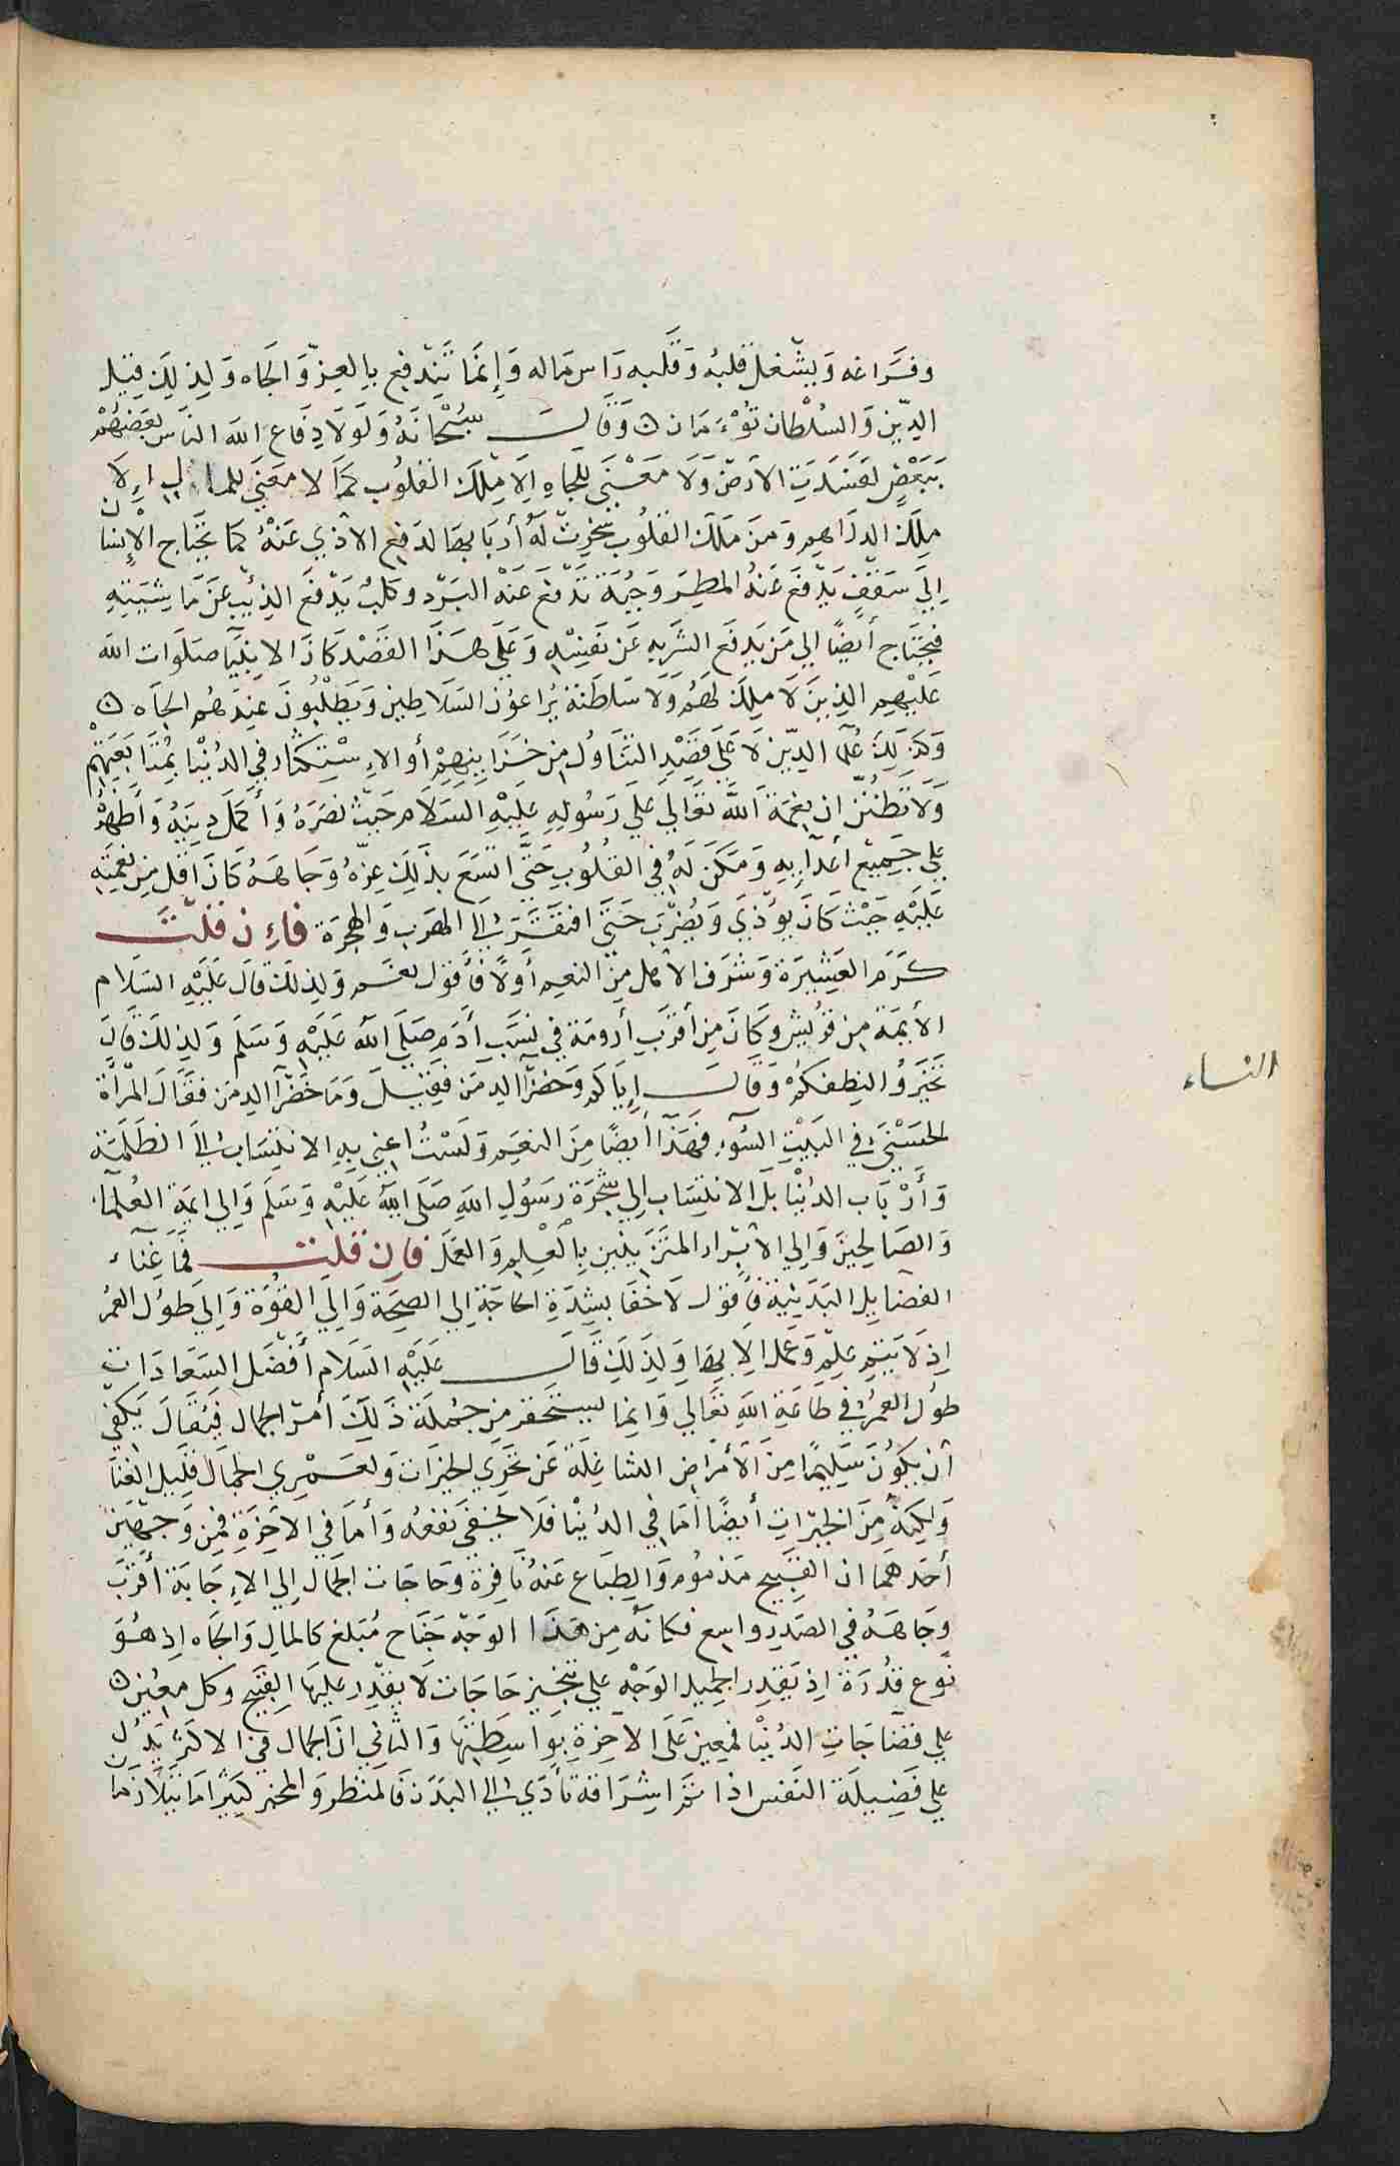 وفراغه ويشغل قلبه وقلبه راس ماله وإنما تندفع بالعز والجاه ولذلك قيل
الدين والسلطان توءمان وقال سبحانه ولولا دفاع الله الناس بعضهم
ببعض لفسدت الارض ولا معنى للجاه الا ملك القلوب كما لا معنى للمال إلا
ملك الدراهم ومن ملك القلوب سخرت له أربابها لدفع الأذى عنه كما يحتاج الإنسان
إلي سقف يدفع عنه المطر وجبة تدفع عنه البرد وكلب يدفع الذئب عن ماشيته
فيحتاج أيضا الي من يدفع الشر به عن نفسه وعلي هذا القصد كان الانبيآ صلوات الله
عليهم الذين لا ملك لهم ولا سلطنة يراعون السلاطين ويطلبون عندهم الجاه
وكذلك علمآ الدين لا علي قصد التناول من خزاينهم أو الاستكثار في الدنيا بمتابعتهم
ولا تظنن ان نعمة الله تعالي علي رسوله عليه السلام حيث نصره وأكمل دينه وأظهره
علي جميع أعدآيه ومكن له في القلوب حتى اتسع بذلك عزه وجاهه كان اقل من نعمته
عليه حيث كان يؤذي ويضرب حتى افتقر إلى الهرب والهجرة فإن قلت
كرم العشيرة وشرف الأهل من النعيم أولا فأقول نعم ولذلك قال عليه السلام
الأيمة من قريش وكان من أقرب أرومة في نسب أدم صلي الله عليه وسلم ولذلك قال
تخيروا لنطفكم وقال إياكم وخضرآ الدمن فقيل وما خضرآ الدمن فقال المرأة
الحسنى في البيت السوء فهذا أيضا من النعيم ولست اعني به الانتساب إلى الظلمة
وأرباب الدنيا بل الانتساب الي شجرة رسول الله صلي الله عليه وسلم والي ايمة العلمآ
والصالحين والي الابرار المتزينين بالعلم والعمل فإن قلت فما غنآء
الفضايل البدنية فأقول لا خفا بشدة الحاجة الي الصحة والي القوة والي طول العمر
إذ لا يتم علم وعمل الا بها ولذلك قال عليه السلام أفضل السعادات
طول العمر في طاعة الله تعالي وانما يستحقر من جملة ذلك أمر الجمال فيقال يكفي
أن يكون سليما من الأمراض الشاغلة عن تحري الخيرات ولعمري الجمال قليل الغنا
ولكنه من الخيرات أيضا أما في الدنيا فلا يخفى نفعه وأما في الآخرة فمن وجهين
أحدهما ان القبيح مذموم والطباع عنه نافرة وحاجات الجمال إلي الإجابة أقرب
وجاهه في الصدر واسع فكانه من هذا الوجه جناح مبلغ كالمال والجاه إذ هو
نوع قدرة اذ يقدر الجميل الوجه علي تنجيز حاجات لا يقدر عليها القبيح وكل معين
علي قضا حاجات الدنيا فمعين على الآخرة بواسطتها والثاني ان الجمال في الاكثر يدل
علي فضيلة النفس اذا تم اشراقه تأدي إلي البدن فالمنظر والمخبر كثيرا ما يتلازما
النساء